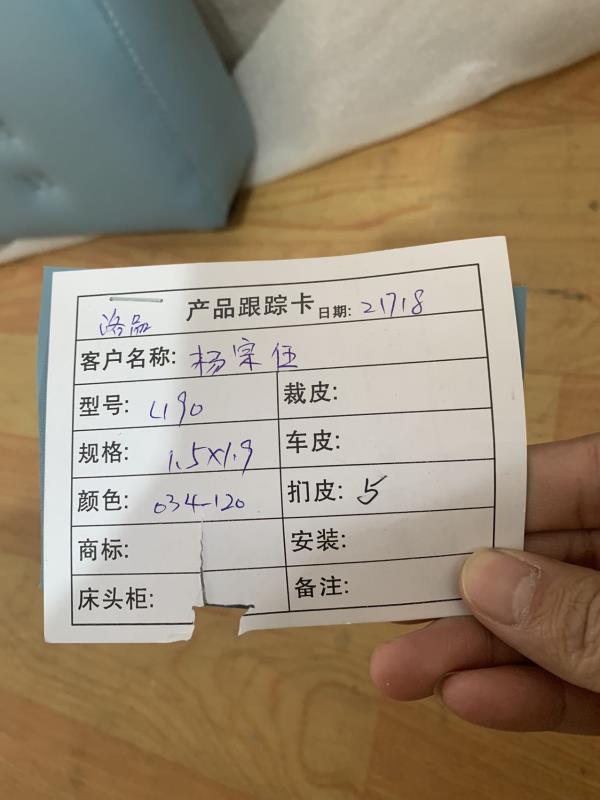 产品跟踪卡 日期: 21718
客户名称: 杨宗伍
型号: L190 裁皮:
规格: 1.5×1.9 车皮:
颜色: 034-120 扪皮: 5
商标: 安装:
床头柜: 备注: